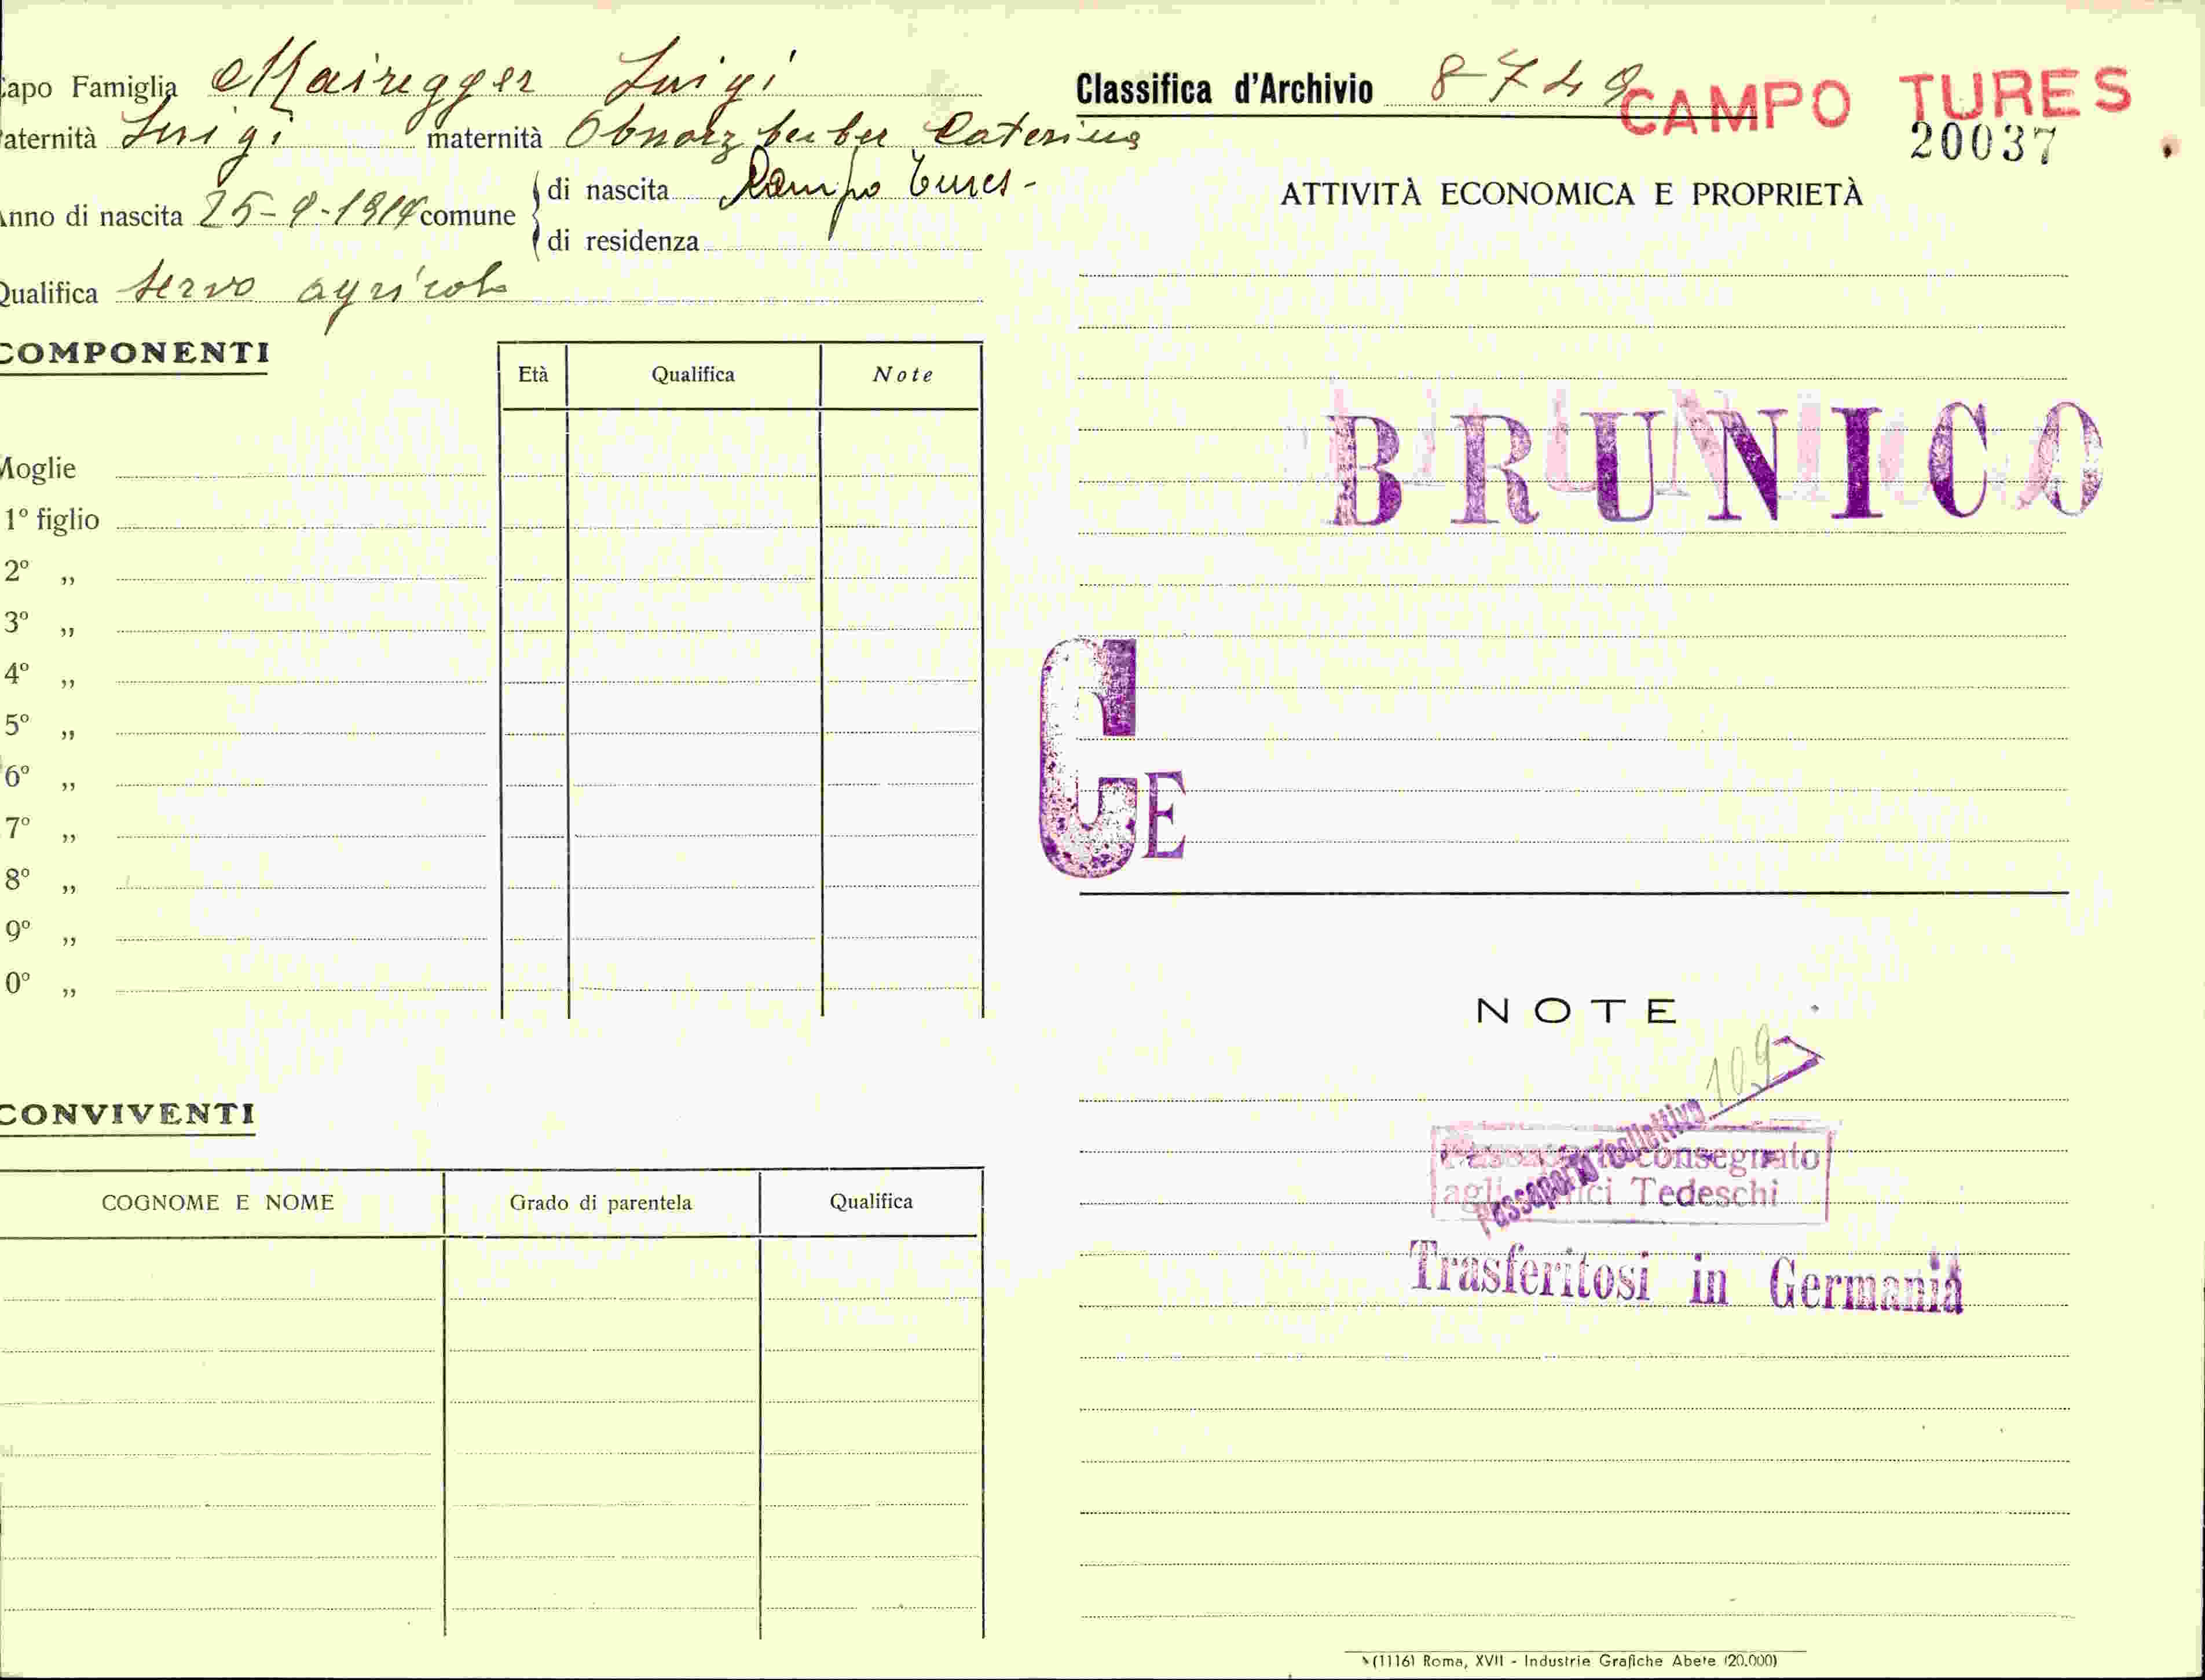 apo Famiglia Mairegger Luigi
aternità Luigi maternità Caterina
nno di nascita 25-9-1914 comune
di nascita Campo Tures-
di residenza
Qualifica servo agricolo
COMPONENTI
Età Qualifica Note
Moglie
1º figlio
2º ,,
3º ,,
4º ,,
5º ,,
6º ,,
7º ,,
8º ,,
9º ,,
0º ,,
CONVIVENTI
COGNOME E NOME Grado di parentela Qualifica
Classifica d'Archivio 8-749
CAMPO TURES
20037
ATTIVITÀ ECONOMICA E PROPRIETÀ
BRUNICO
GE
NOTE
109
Passaporto collettivo
Passaporto consegnato
agli Tedeschi
Trasferitosi in Germania
(11161 Roma, XVII - Industrie Grafiche Abete (20.000)